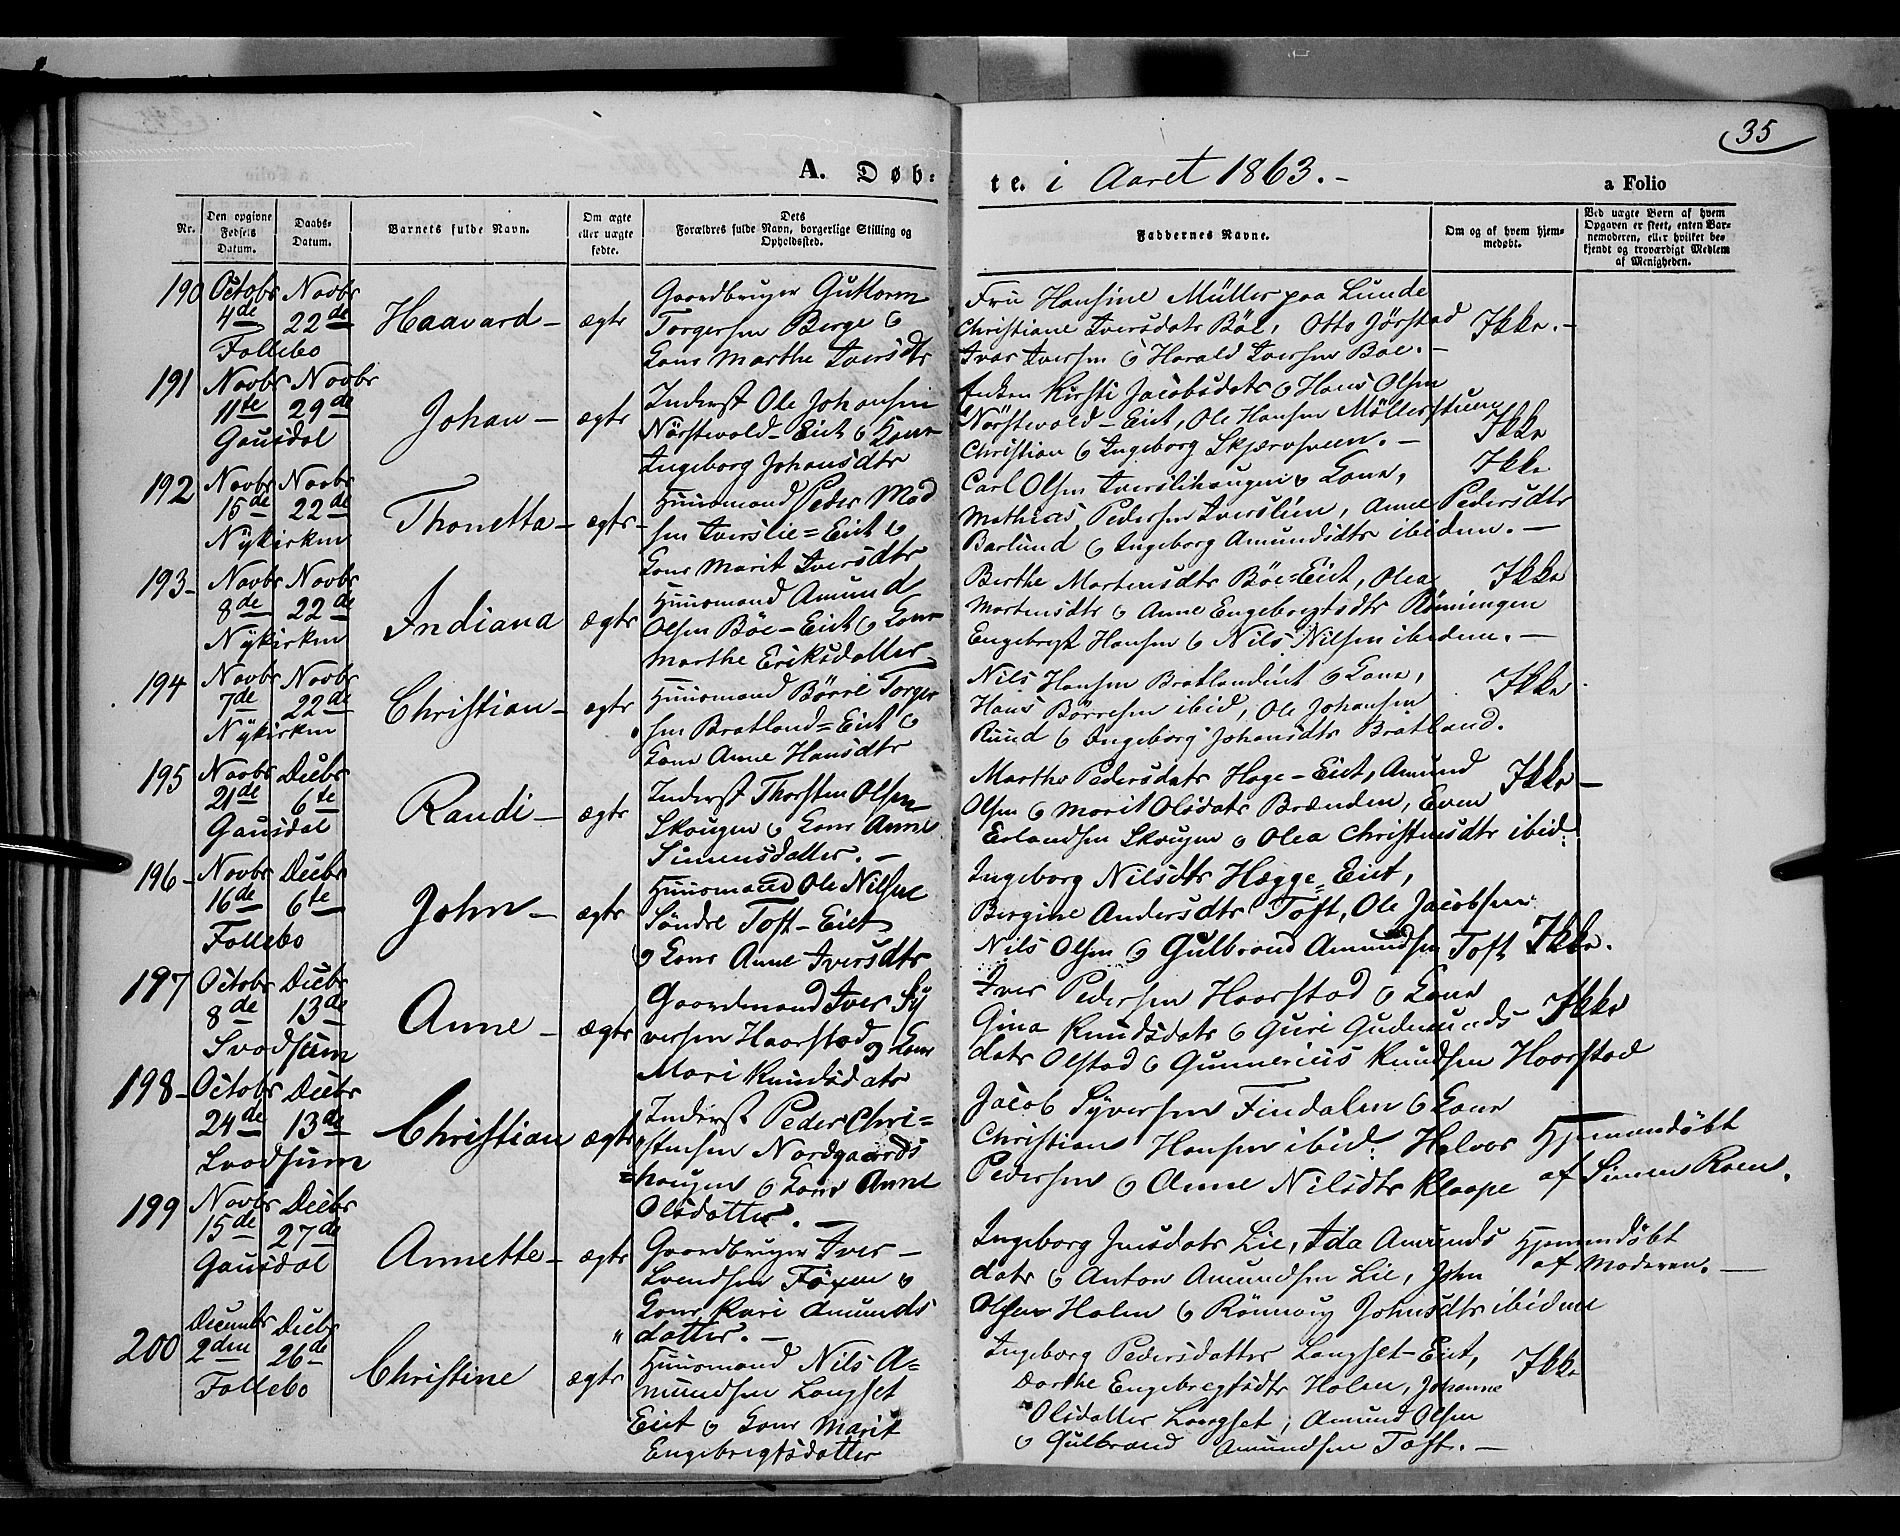 35
A. Døb:
te. i Aaret 1863.-
a Folio
Nr.
Den opgivne
Fødsels
Datum.
Daabs-
Datum.
Barnets fulde Navn.
Om ægte
eller uægte
fødte.
Dets
Forældres fulde Navn, borgerlige Stilling og
Opholdssted.
Faddernes Navne.
Om og af hvem hjem-
medøbt.
Ved uægte Børn af hvem
Opgaven er skeet, enten Bar-
nemoderen, eller hvilket be-
kjendt og troværdigt Medlem
af Menigheden.
190
Octobr
4de
Novbr
22de
Follebo
Haavard-
ægte
Gaardbruger Guttorm
Torgersen Berge &
Kone Marthe Iversdtr
Fru Hansine Müller paa Lunde
Christiane Iversdatr Böe, Otto Jörstad
Ivar Iversen & Harald Iversen Böe.-
Ikke.-
191
Novbr
11te
Novbr
29de
Gausdal
Johan-
ægte
Inderst Ole Johansen
Nörstevold-Eiet & Kone
Ingeborg Johansdtr
Enken Kirsti Jacobsdatr & Hans Olsen
Nörstevold-Eiet, Ole Hansen Möllerstuen
Christian & Ingeborg Skjæraasveen.-
Ikke
192
Novbr
15de
Novbr
22de
Nykirken
Thonetta-
ægte-
Huusmand Peder Mad
sen Iverslie=Eiet &
Kone Marit Iversdtr
Carl Olsen Iverslihaugen & Kone,
Mathias Pedersen Iverslien, Anne Pedersdtr
Barlund & Ingeborg Amundsdtr ibidem.-
Ikke
193-
Novbr
8de
Novbr
22de
Nykirken
Indiana
ægte
Huusmand Amund
Olsen Böe-Eiet & Kone
Marthe Eriksdatter
Berthe Martensdtr Böe=Eiet, Olea
Martensdtr & Anne Engebregtsdtr Rönningen
Engebregt Hansen & Nils Nilsen ibidem.-
Ikke
194
Novbr
7de
Novbr
22de
Nykirken
Christian-
ægte
Huusmand Börre Torger
sen Bratland=Eiet &
Kone Anne Hansdtr
Nils Hansen Bratlandeiet & Kone,
Hans Börresen ibid, Ole Johansen
Ruud & Ingeborg Johansdtr Bratland.
Ikke
195
Novbr
21de
Decbr
6te
Gausdal
Randi-
ægte
Inderst Thorsten Olsen
Skougen & Kone Anne
Simensdatter.-
Marthe Pedersdatr Hage-Eiet, Amund
Olsen & Marit Olsdatr Brænden, Even
Erlandsen Skougen & Olea Christensdtr ibid:
Ikke-
196-
Novbr
16de
Decbr
6te
Follebo
John-
ægte
Huusmand Ole Nilsen
Söndre Toft-Eiet
& Kone Anne Iversdtr
Ingeborg Nilsdtr Hegge=Eiet,
Bergine Andersdtr Toft, Ole Jacobsen
Nils Olsen & Gulbrand Amundsen Toft
Ikke.
197
Octobr
8de
Decbr
13de
Svodsum
Anne-
ægte
Gaardmand Iver Sy
versen Haarstad & Kone
Mari Knudsdatr
Iver Pedersen Haarstad & Kone
Gina Knudsdatr & Guri Gudmunds
datr Olstad & Gunnerius Knudsen Haarstad
Ikke
198-
Octobr
24de
Decbr
13de
Svodsum
Christian
ægte
Inderst Peder Chri=
stensen Nordgaards
=haugen & Kone Anne
Olsdatter.-
Jacob Syversen Findalen & Kone
Christian Hansen ibid: Halvor
Pedersen & Anne Nilsdtr Klaape
Hjemmedöbt
af Simen Roen.
199
Novbr
15de
Decbr
27de
Gausdal
Annette-
ægte
Gaardbruger Iver-
Svendsen Föxen &
Kone Kari Amunds
" datter.-
Ingeborg Jensdatr Lie, Ida Amunds
datr & Anton Amundsen Lie, John
Olsen Holen & Rönnaug Johnsdtr ibidem
Hjemmedöbt
af Moderen.-
200
Decembr
2den
Decbr
26de
Follebo
Christine
ægte
Huusmand Nils A=
mundsen Langset
Eiet & Kone Marit
Engebregtsdatter
Ingeborg Pedersdatter Langset-Eiet,
Dorthe Engebregtsdtr Holen, Johanne
Olsdatter Langset, Amund Olsen
& Gulbrand Amundsen Toft.-
Ikke